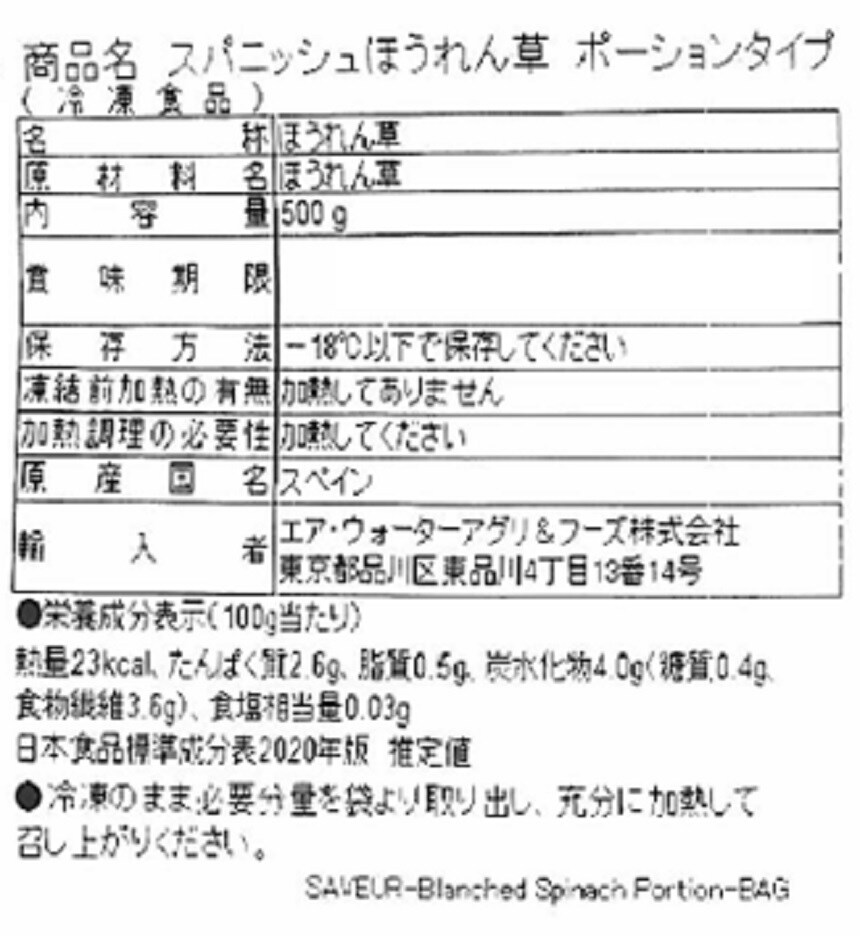 商品名 スパニッシュほうれん草 ポーションタイプ
(冷凍食品)
名称 ほうれん草
原材料名 ほうれん草
内容量 500g
賞味期限
保存方法 －18℃以下で保存してください
凍結前加熱の有無 加熱してありません
加熱調理の必要性 加熱してください
原産国名 スペイン
輸入者 エア・ウォーターアグリ&フーズ株式会社
東京都品川区東品川4丁目13番14号
●栄養成分表示(100g当たり)
熱量23kcal、たんぱく質2.6g、脂質0.5g、炭水化物4.0g(糖質0.4g、
食物繊維3.6g)、食塩相当量0.03g
日本食品標準成分表2020年版 推定値
●冷凍のまま必要分量を袋より取り出し、充分に加熱して
召し上がりください。
SAVEUR-Blanched Spinach Portion-BAG